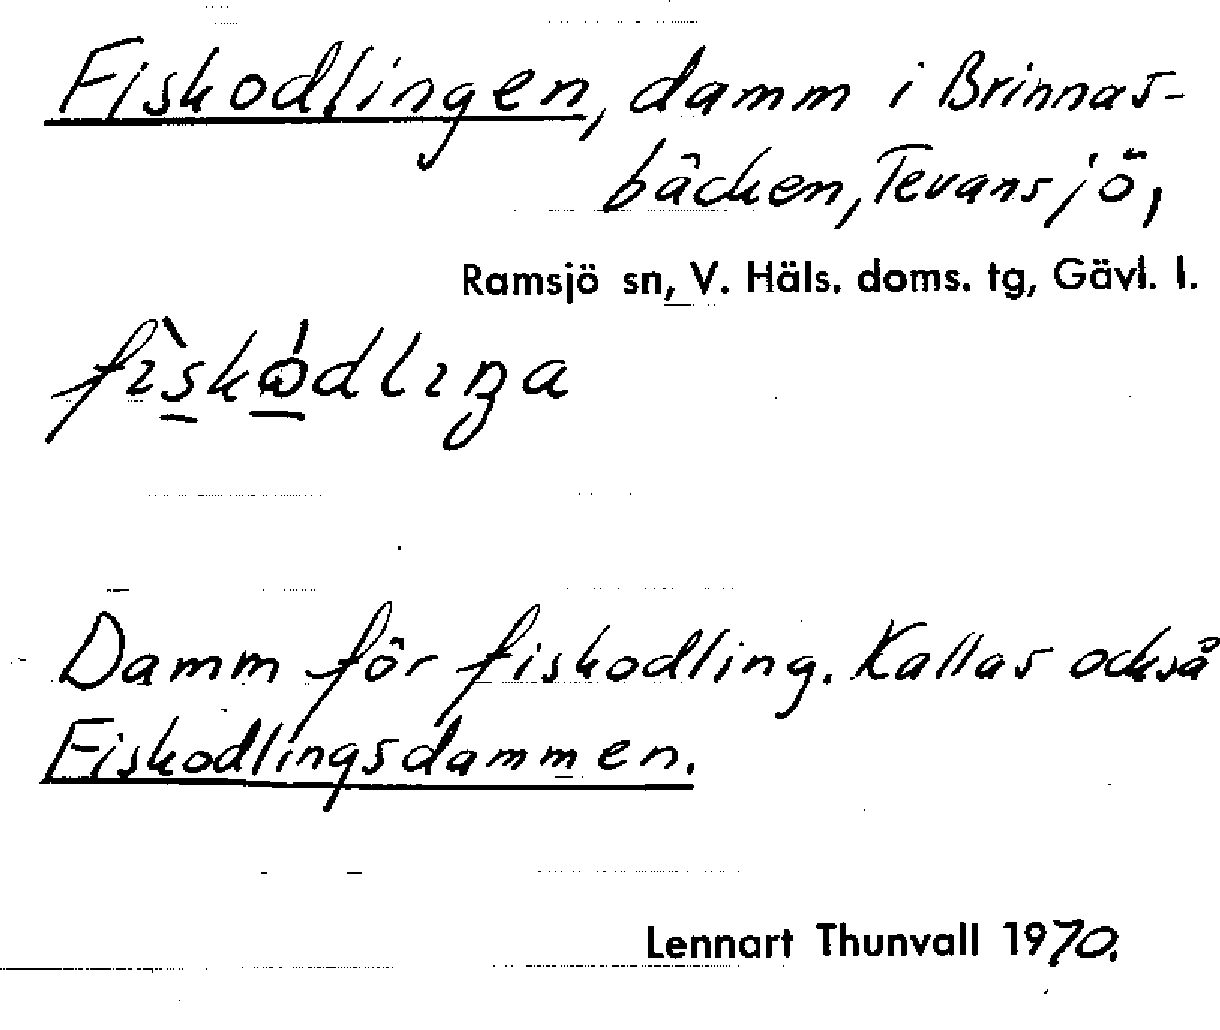 Fiskodlingen, damm i Brinnas-
bäcken, Tevansjö,
Ramsjö sn, V. Häls. doms. tg, Gävl. l.
Damm för fiskodling. Kallas också
Fiskodlingsdammen.
Lennart Thunvall 1970.